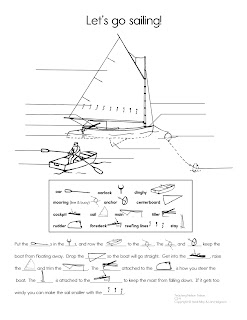 Let's go sailing!
oar oarlock dinghy
mooring (line & buoy) anchor centerboard
cockpit sail main tiller
rudder foredeck reefing lines stay
Put the in the and row the to the The and keep the
boat from floating away. Drop the so the boat will go straight. Get into the raise
the and trim the The attached to the is how you steer the
boat. The is attached to the to keep the from falling down. If it gets too
windy you can make the sail smaller with the